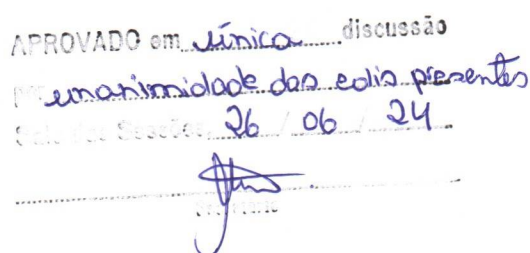 APROVADO em única discussão
por unanimidade dos edis presentes
Sala das Sessões, 26 / 06 / 24
Secretário